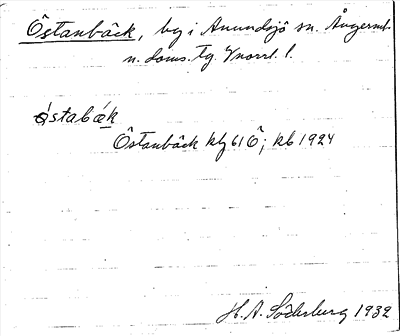 Östanbäck, by i Anundsjö sn. Ångerml.
n. doms. tg. Vnorrl. l.
östabäk
Östanbäck klj 61 Ö; kb 1924
H. A. Söderberg 1932